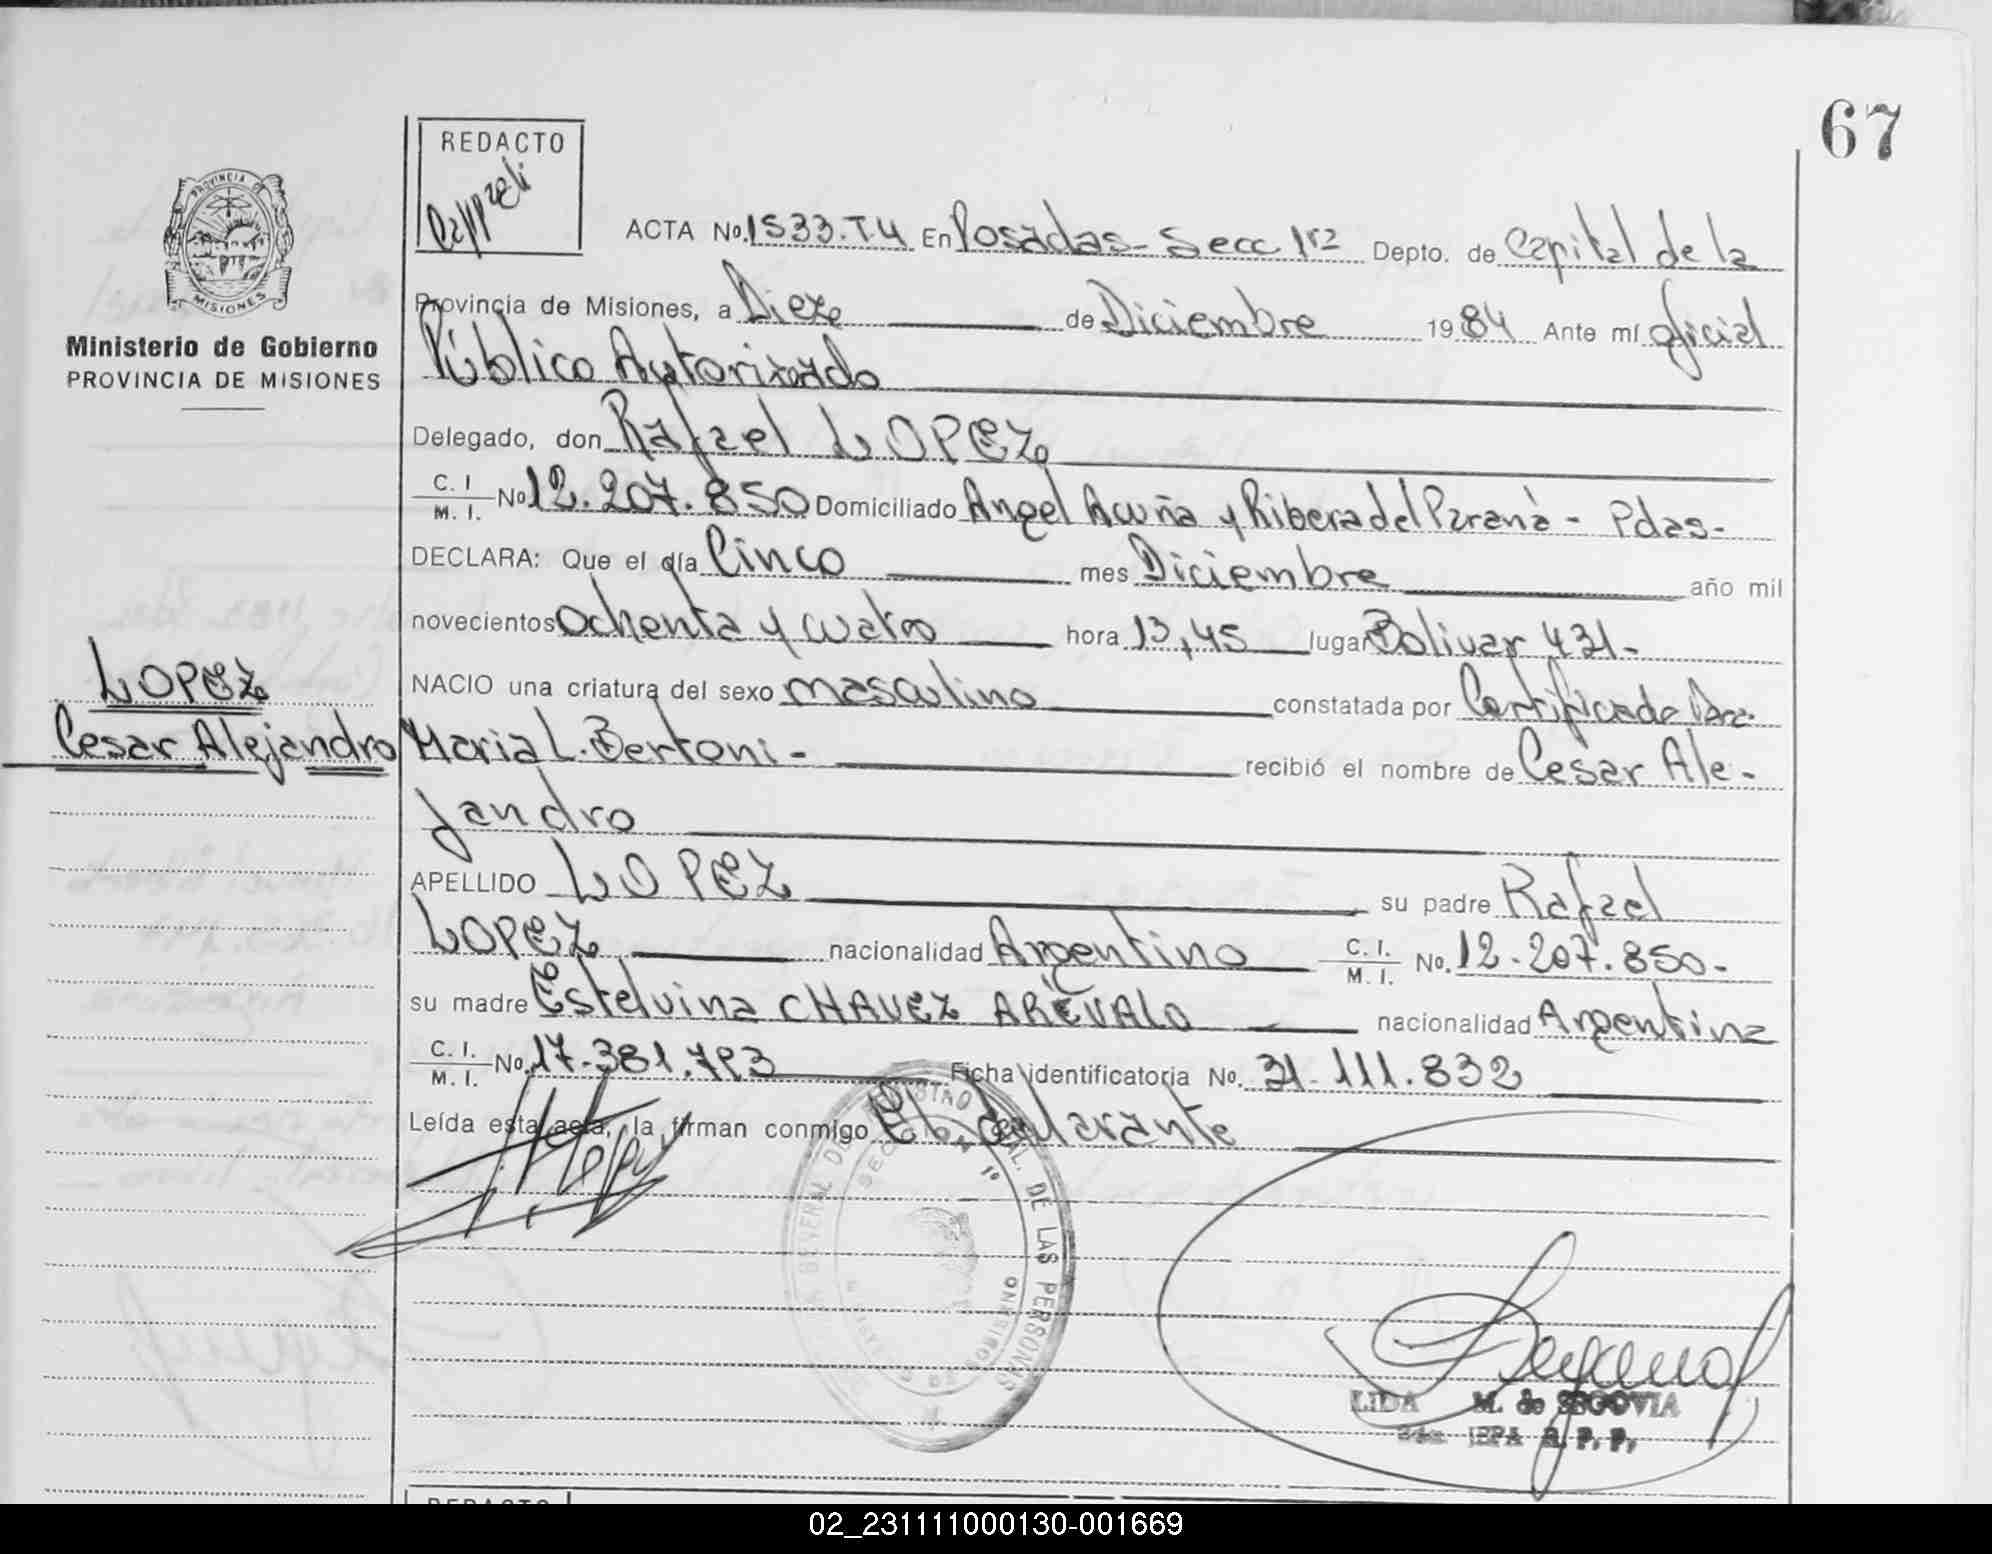 67
REDACTO
Cappeli
PROVINCIA DE
MISIONES
Ministerio de Gobierno
PROVINCIA DE MISIONES
ACTA No. 1533.T4 En Posadas - Secc 1ra Depto. de Capital de la
Provincia de Misiones, a Diez de Diciembre 1984 Ante mí oficial
Público Autorizado
Delegado, don Rafael LOPEZ
C. I. / M. I. No 12.207.850 Domiciliado Angel Acuña y Ribera del Paraná - Pdas-
DECLARA: Que el día Cinco mes Diciembre año mil
novecientos ochenta y cuatro hora 13,45 lugar Bolivar 431-
LOPEZ
NACIO una criatura del sexo masculino constatada por Certificado Dra.
Cesar Alejandro
Maria L. Bertoni- recibió el nombre de Cesar Ale-
jandro
APELLIDO LOPEZ su padre Rafael
LOPEZ nacionalidad Argentino C. I. / M. I. No. 12-207.850-
su madre Estelvina CHAVEZ AREVALO nacionalidad Argentina
C. I. / M. I. No. 17-381.793 Ficha identificatoria No. 31-111.832
Leída esta acta, la firman conmigo El declarante
DE LAS PERSONAS
LIDA M. de SEGOVIA
JEFA R. P. P.
REDACTO
02_231111000130-001669